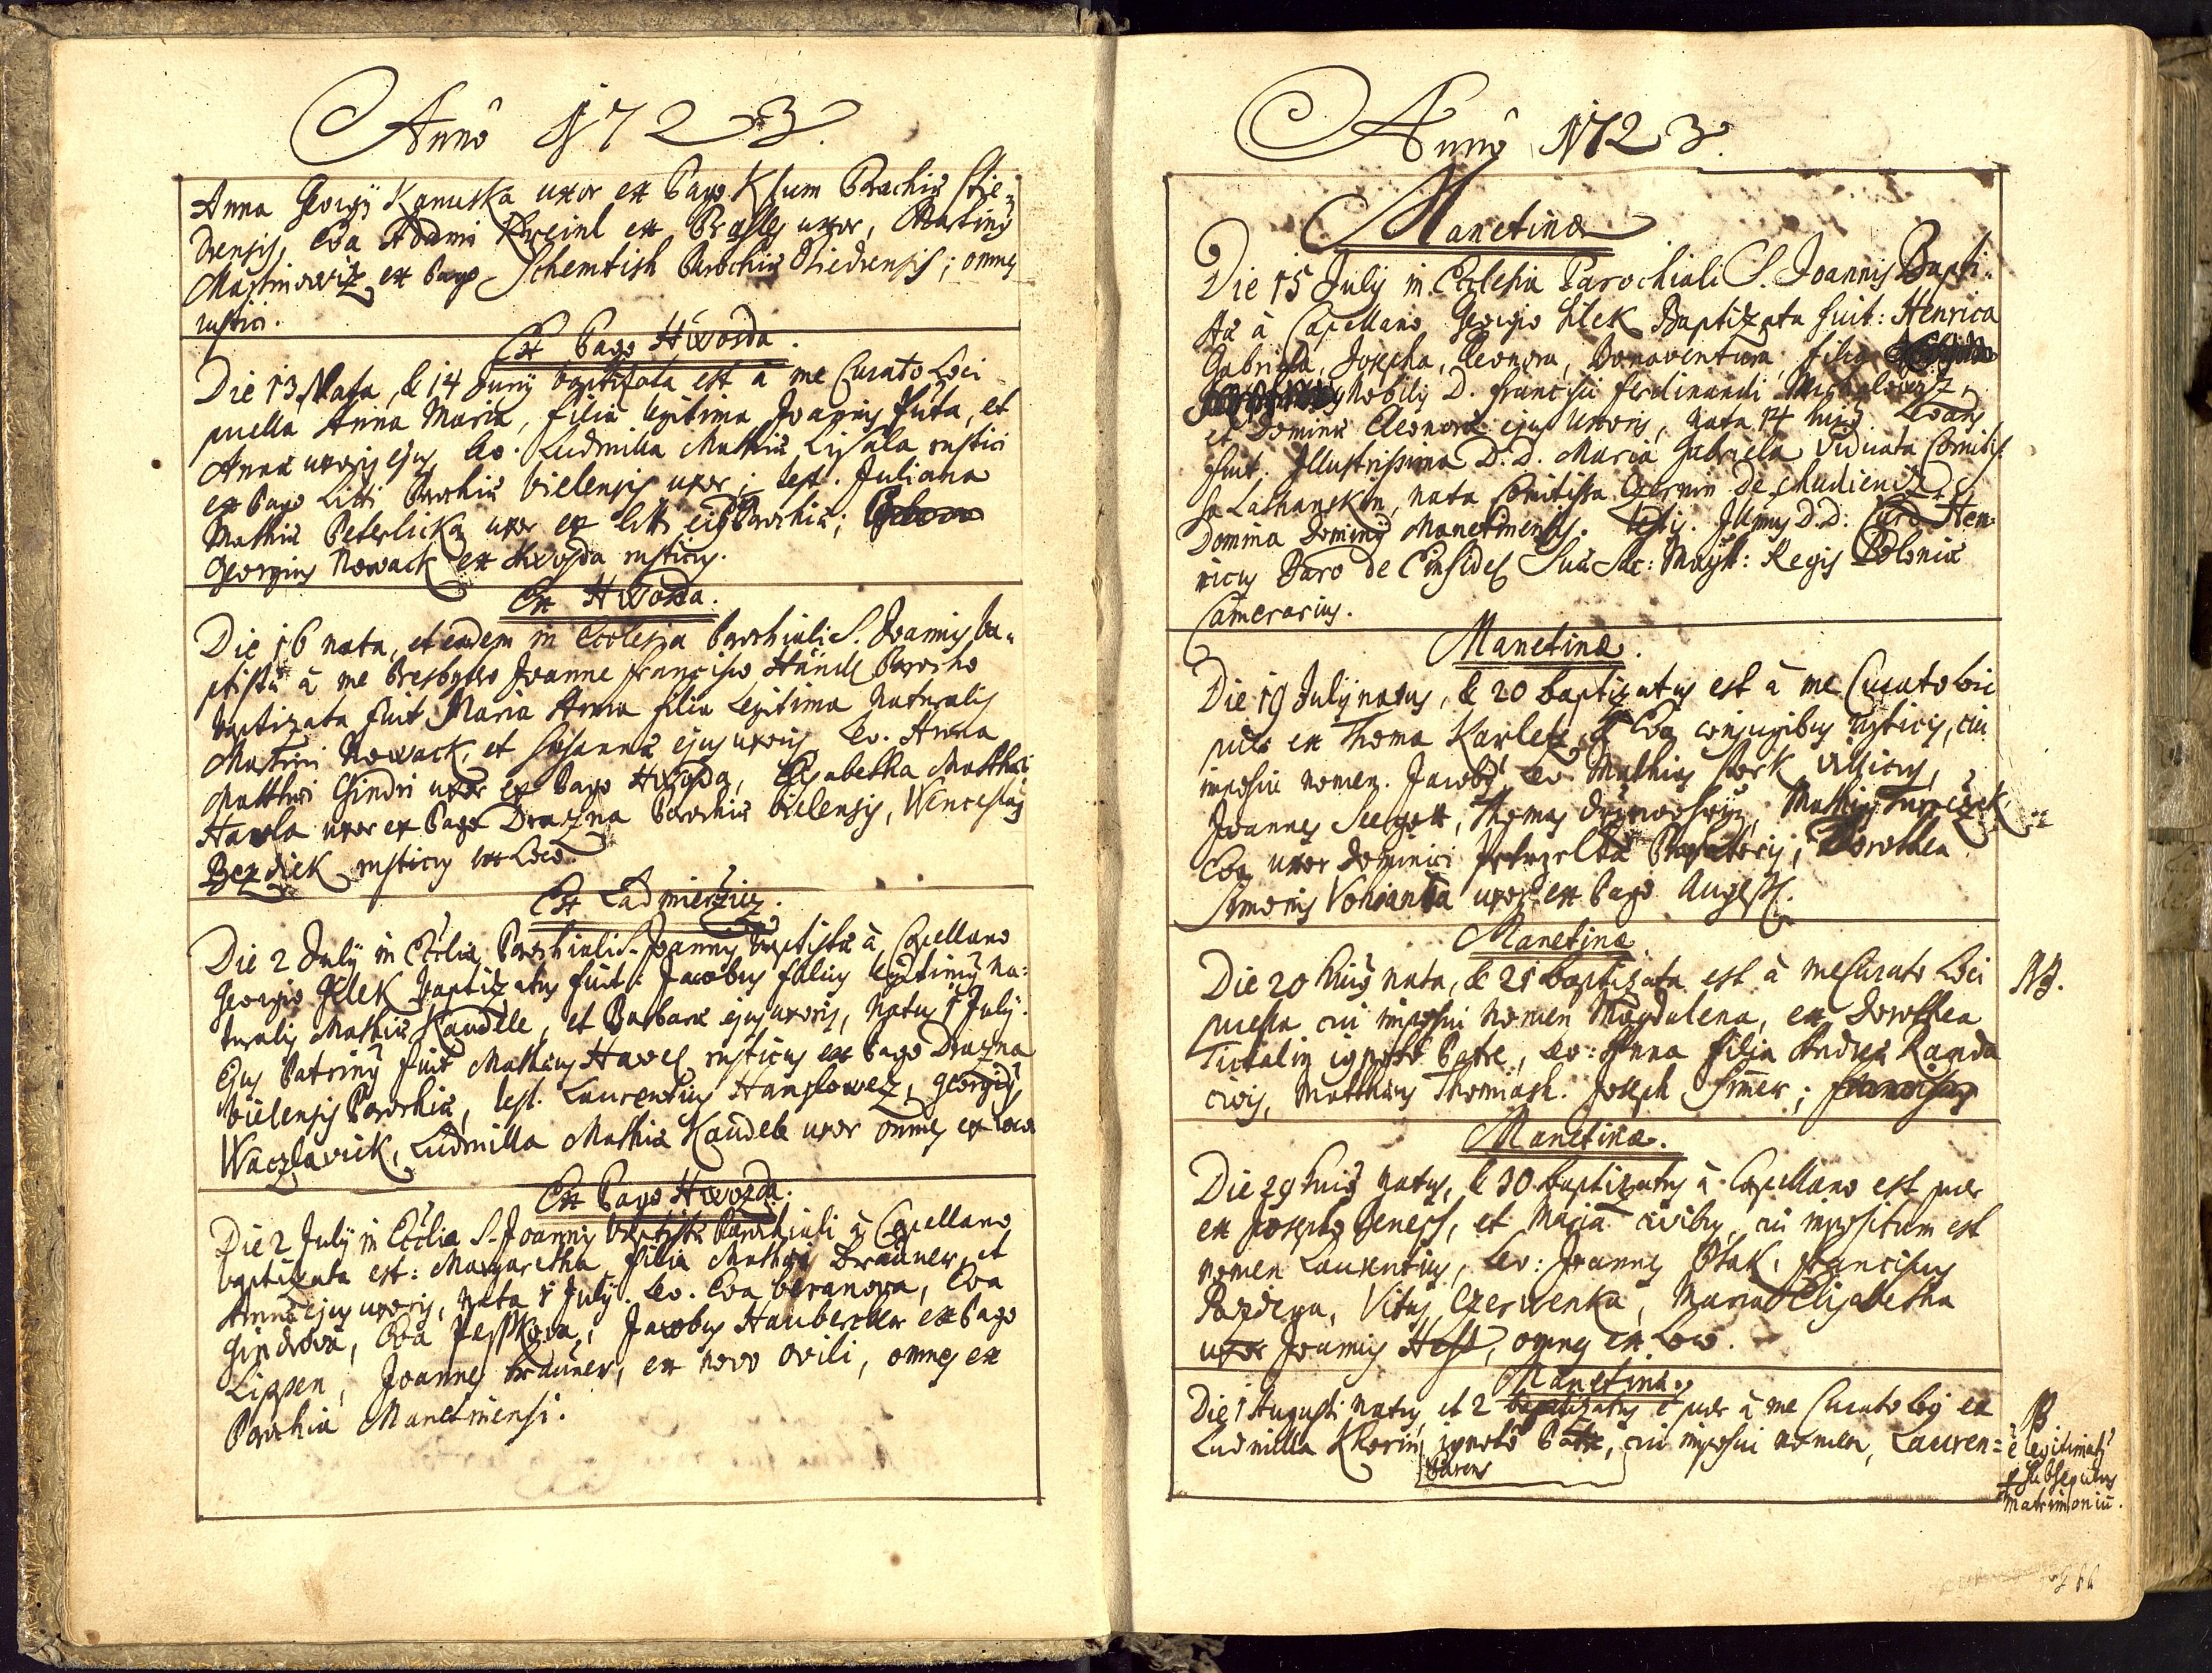 Anno 1723.
Anna Georgij Kanuska uxor ex Pago Klum Parochiæ Stie-
drensis, Eva Adami Kreinl ex Prasles uxor, Martinus
Martinowitz ex Pago Schemtish Parochiæ Stiedrensis; omnes
rustici.
Ex Pago Hwozda.
Die 13 Nata, & 14 Junij baptizata est à me Curato Loci
puella Anna Maria, filia legitima Joannis Futa, et
Annæ uxoris ejus. Lev. Ludmilla Mathiæ Lisala rustici
ex Pago Litti Parochiæ bielensis uxor; test. Juliana
Mathiæ Peterlicka uxor ex Litti ejus Parochiæ;
Georgius Nowack ex Hwozda rusticus.
Ex Hwozda.
Die 16 nata, et eadem in Ecclesia Parochiali S. Joannis ba-
ptistæ à me Presbytero Joanne Francisco Händl Parocho
baptizata fuit Maria Anna filia Legitima Naturalis
Martini Nowack, et Susannæ ejus uxoris. Lev. Anna
Matthæi Gindri uxor ex Pago Hwozda, Elisabetha Matthæi
Hawla uxor ex Pago Drazna Parochiæ bielensis, Wenceslaus
Bezdiek rusticus ex Loco.
Ex Ladmierzicz.
Die 2 July in Ecclia Parochiali S. Joannis Baptistæ à Capellano
Georgio Gelek baptizatus fuit: Jacobus filius legitimus na-
turalis Mathiæ Kandele, et Barbaræ ejus uxoris, natus 1 July.
Ejus Patrinus fuit Mathæus Havel rusticus ex Pago Drazna
bielensis Parochiæ, test. Laurentius Hanslowetz, Georgius
Waczlavick, Ludmilla Mathiæ Kandele uxor omnes ex loco
Ex Pago Hwozda.
Die 2 July in Ecclia S. Joannis baptistæ Parochiali à Capellano
baptizata est: Margaretha filia Mathæi Brauner, et
Annæ ejus uxoris, nata 1 July. Lev. Eva beranova, Eva
Gindrova, Eva Pesskova, Jacobus Hauberzller ex Pago
Lipzen, Joannes Brauner, ex novo ovili, omnes ex
Parochia Manetinensi.
Anno 1723.
Manetinæ
Die 15 July in Ecclesia Parochiali S. Joannis Bapti-
stæ à Capellano Georgio Gelek Baptizata fuit: Henrica
Gabriela, Josepha, Eleonora, Bonaventura, filia
Nobilis D. Francisci Ferdinandi Michalowitz,
et Dominæ Eleonoræ ejus Uxoris, nata 14 hujus. Levans
fuit. Illustrissima D.D. Maria Gabriela Viduata Comitis-
sa Lažanskin, nata Comitissa Czernin de Chudienicz
Domina Dominij Manetinensis. testis. Illmus D.D. Curd Hen-
ricus Baro de Einsidel Suæ Sac: Mayst: Regis Poloniæ
Camerarius.
Manetinæ.
Die 19 July natus, & 20 baptizatus est à me Curato Loci
puer ex Thoma Karletz, & Eva conjugibus rusticis, cui
imposui nomen. Jacobus Lev. Mathias Stork villicus,
Joannes Seegott, Thomas, Mathias Tureczek,
Eva uxor Dominici; Dorothea
Simonis Vonianka uxor ex Pago Augezd.
Manetinæ
Die 20 hujus nata, & 21 baptizata est à me Curato Loci
puella cui imposui nomen Magdalena, ex Dorothea
Titalin ignoto Patre, Lev: Anna filia Andreæ Randa
civis, Matthæus Thomash. Joseph Simer;
NB.
Manetinæ.
Die 29 hujus natus, & 30 baptizatus à Capellano est puer
ex Josepho Jeness, et Maria civibus, cui impositum est
nomen Laurentius, Lev: Joannes Ptak, Franciscus
Pozdena, Vitus Czerwenka, Maria Elisabetha
uxor Joannis Hess, omnes ex Loco.
Manetinæ.
Die 1 Augusti natus, et 2 baptizatus e puer à me Curato Loci ex
Ludmilla Khorin, ignoto Patre, cui imposui nomen, Lauren-
parens
NB
e legitimatus
p subsequens
matrimoniu.